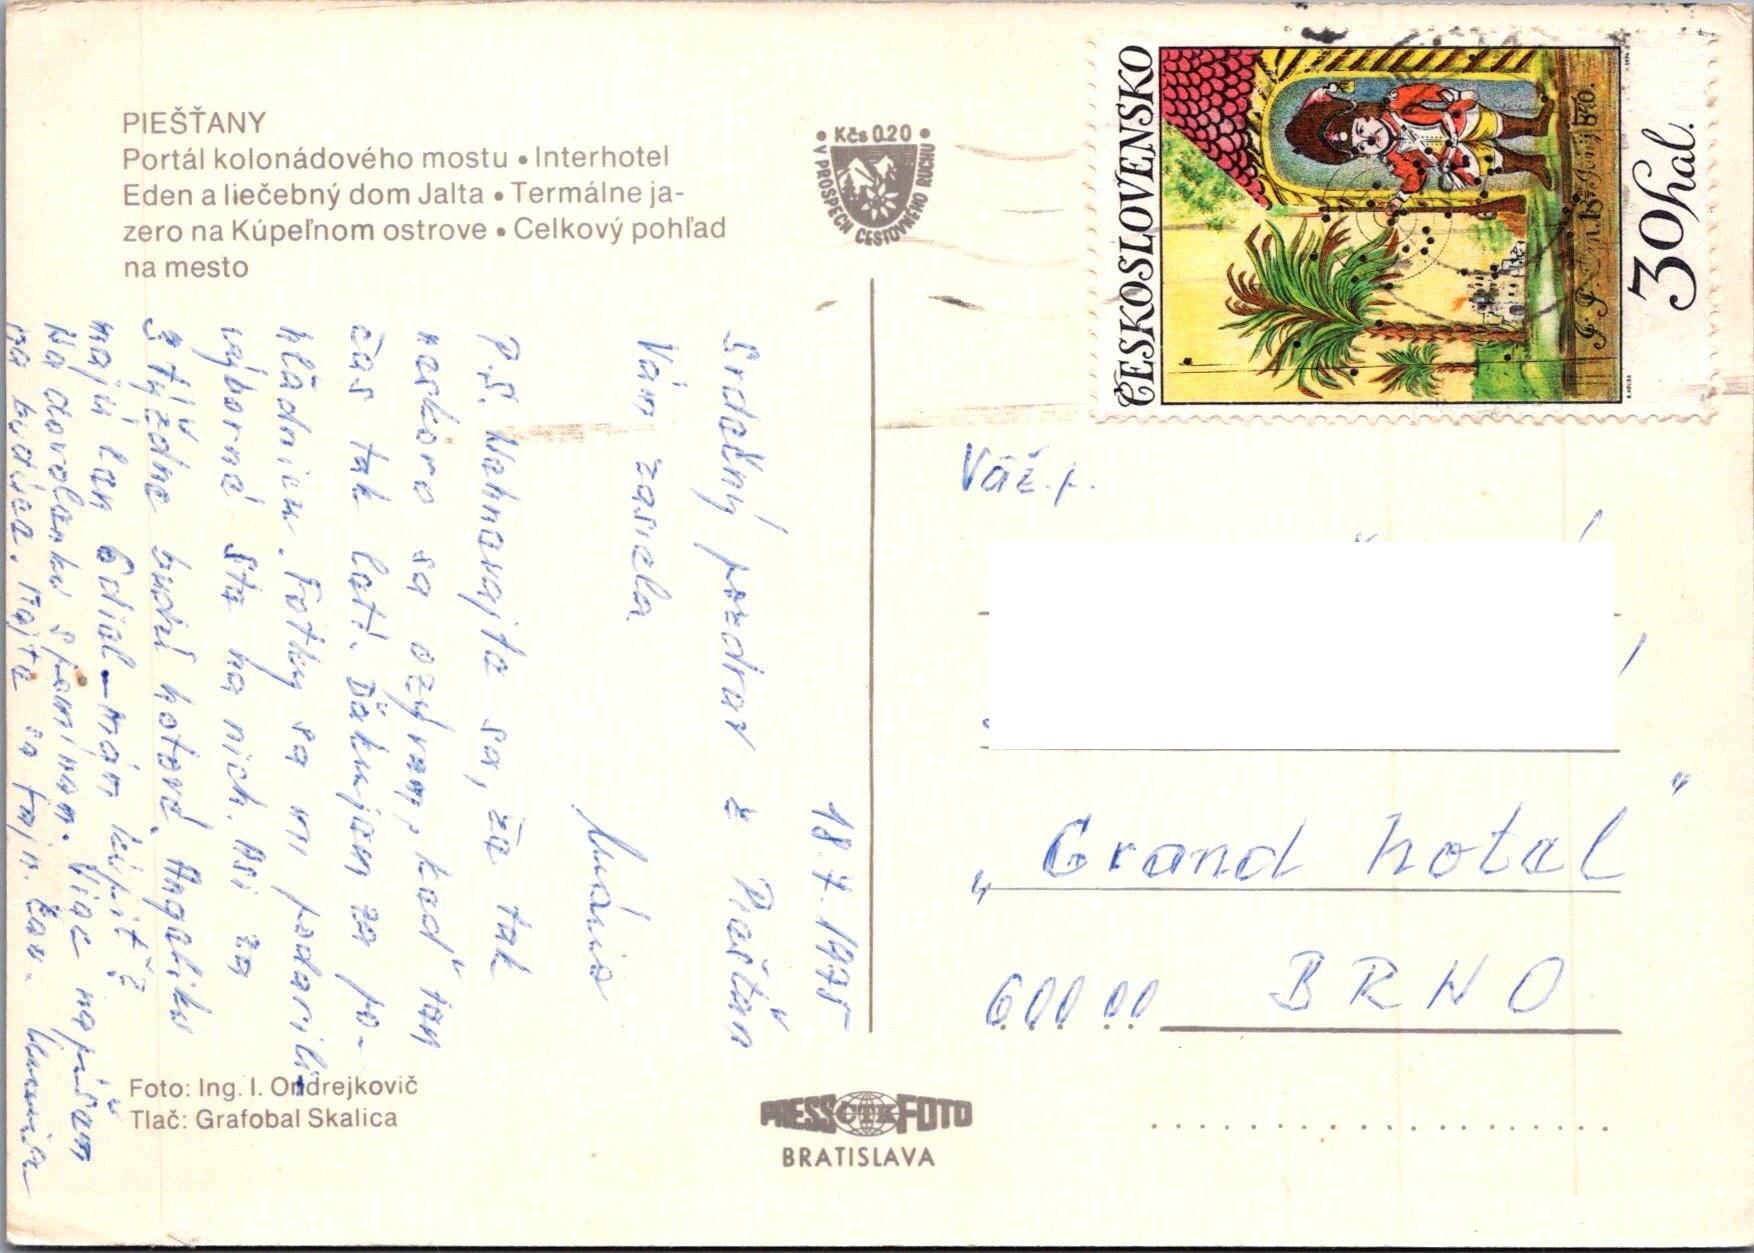 PIEŠŤANY
Portál kolonádového mostu • Interhotel
Eden a liečebný dom Jalta • Termálne ja-
zero na Kúpeľnom ostrove • Celkový pohľad
na mesto
• Kčs 0.20 •
V PROSPECH CESTOVNÉHO RUCHU
ČESKOSLOVENSKO
30 hal.
18.7.1975
Srdečný pozdrav z Piešťan
Vám zasiela
Mária
P.S. Nehnevajte sa, že tak
neskoro sa ozývam, keď ten
čas tak letí. Ďakujem za po-
hľadnicu. Fotky sa mi podarili,
výborné ste na nich. Asi za
3 týždne budú hotové.
majú len mám kúpiť?
Na dovolenku spomínam. Viac napíšem
na budúce. Majte sa fajn. Čau.
Váž.p.
"Grand hotel"
600 00 BRNO
Foto: Ing. I. Ondrejkovič
Tlač: Grafobal Skalica
PRESS ČTK FOTO
BRATISLAVA